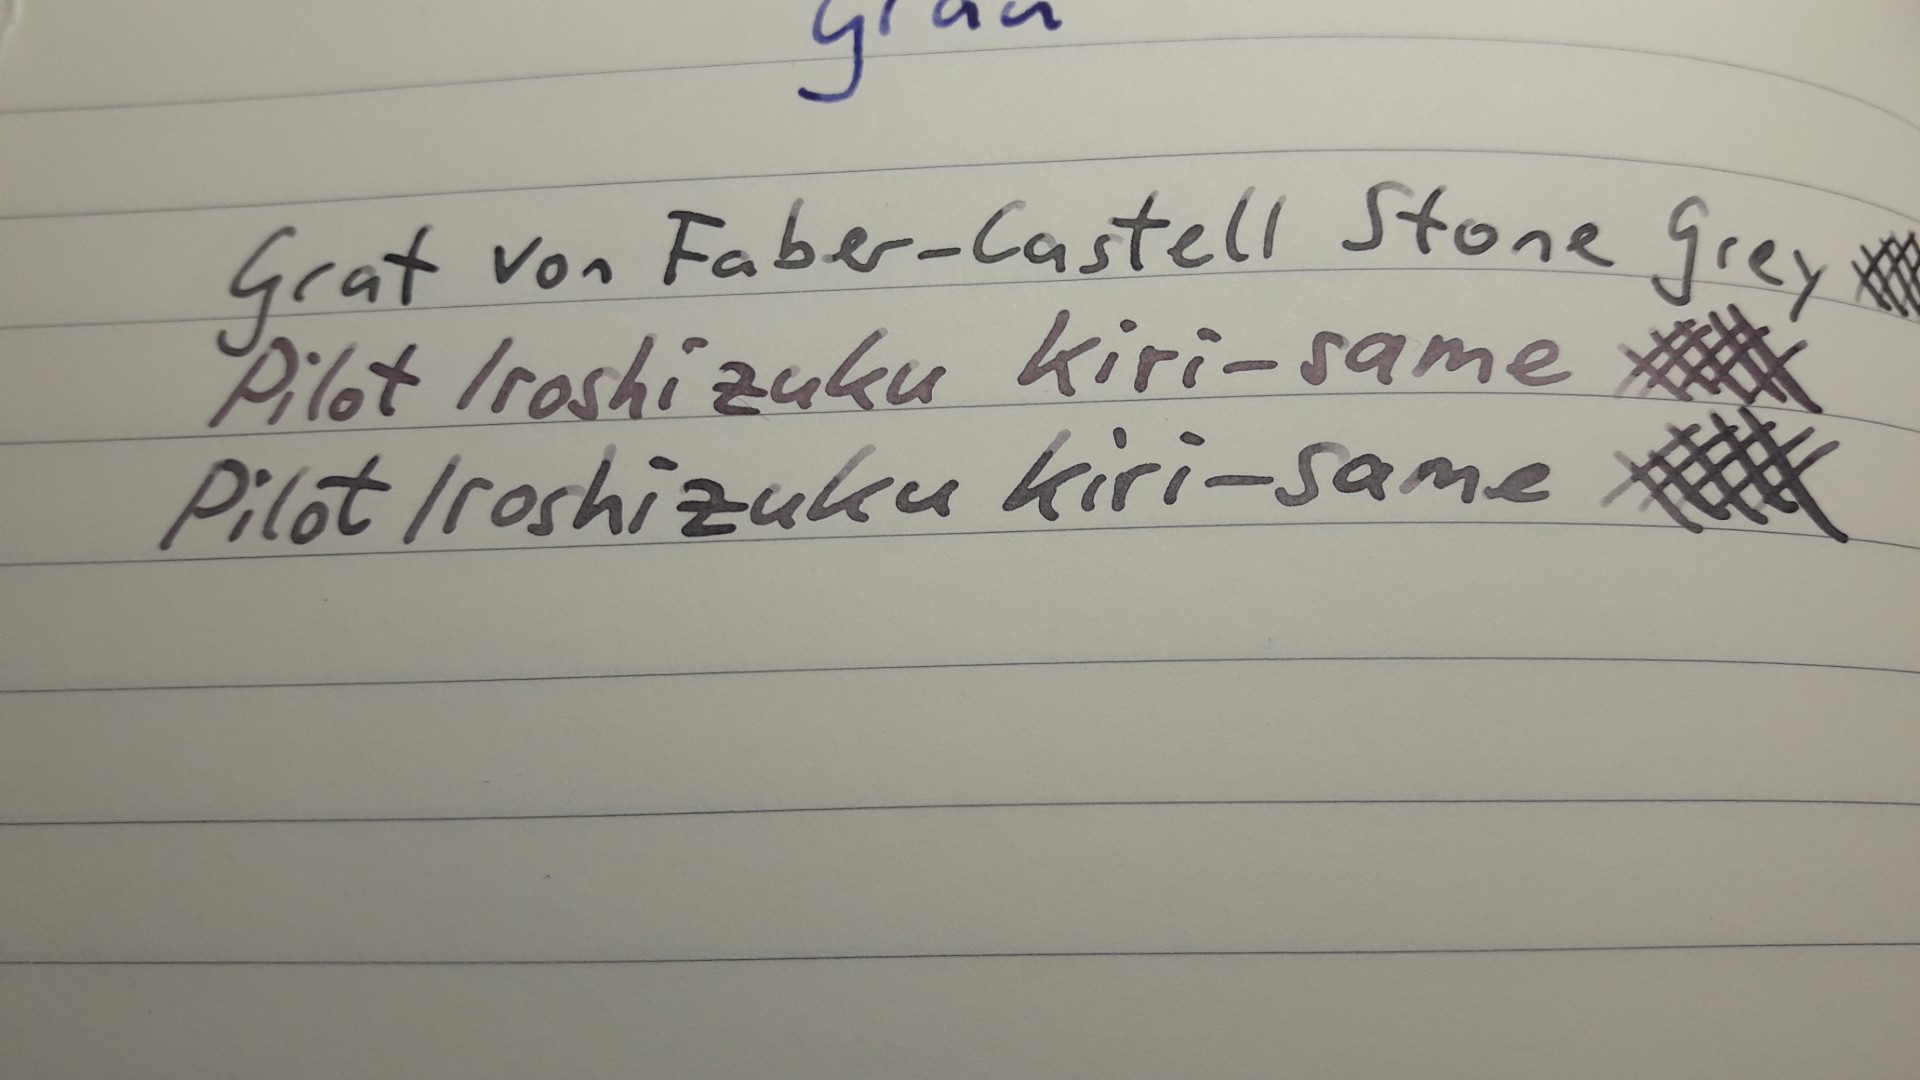 grau
Graf von Faber-Castell Stone Grey
Pilot Iroshizuku kiri-same
Pilot Iroshizuku kiri-same